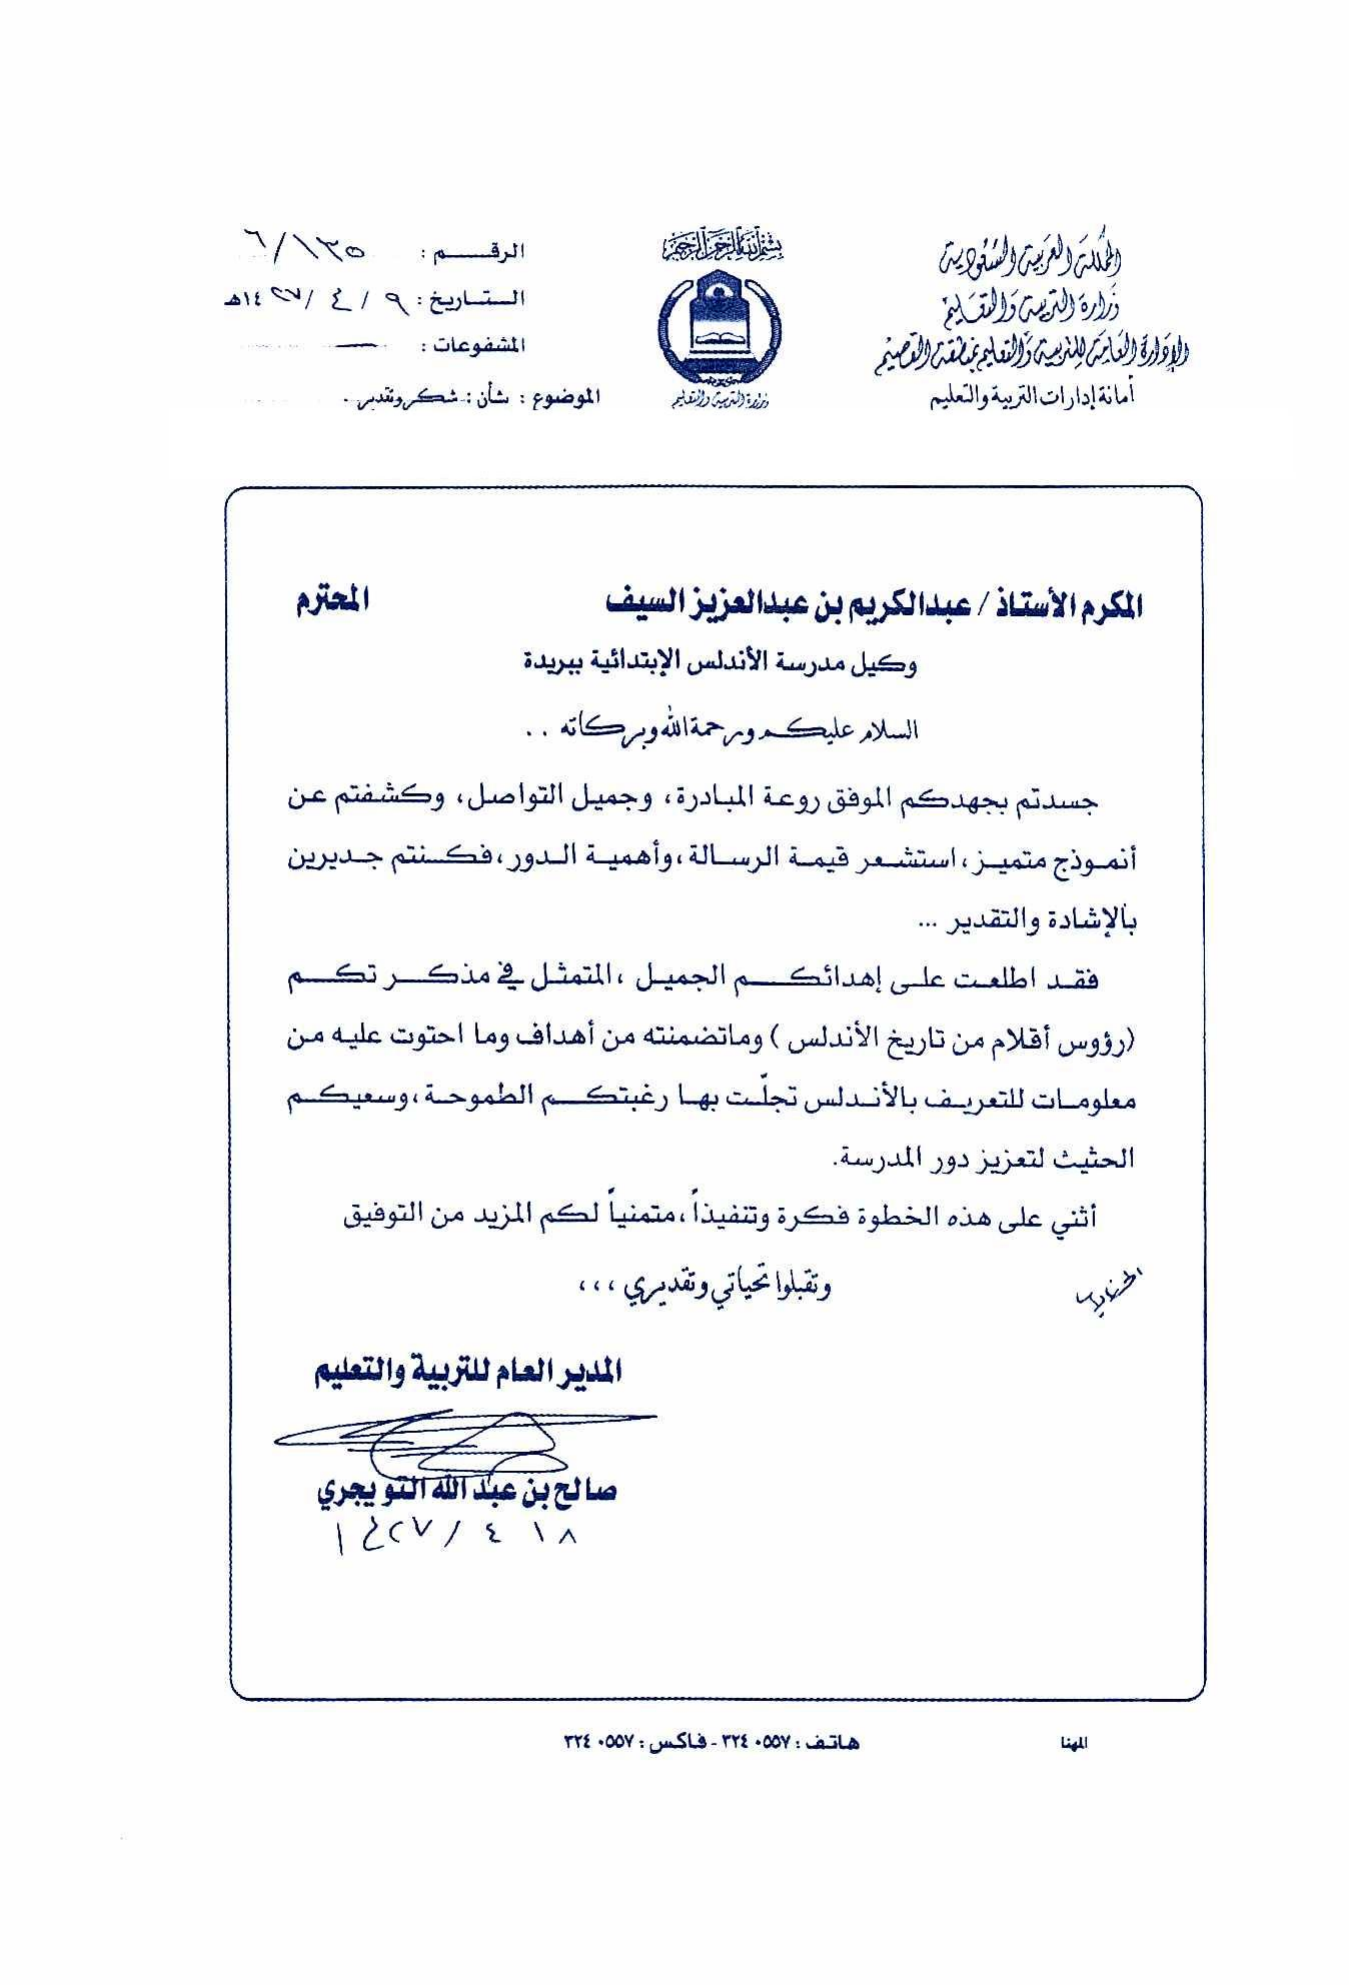 المملكة العربية السعودية
وزارة التربية والتعليم
الإدارة العامة للتربية والتعليم بمنطقة القصيم
أمانة إدارات التربية والتعليم
بسم الله الرحمن الرحيم
وزارة التربية والتعليم
الرقــــم : ٦/١٣٥
الـتـاريخ : ٩ / ٤ / ١٤٢٧هـ
المشفوعات : ـــ
الموضوع : شأن : شكر وتقدير .
المكرم الأستاذ / عبدالكريم بن عبدالعزيز السيف المحترم
وكيل مدرسة الأندلس الإبتدائية ببريدة
السلام عليكم ورحمة الله وبركاته ..
جسدتم بجهدكم الموفق روعة المبادرة، وجميل التواصل، وكشفتم عن
أنموذج متميز، استشعر قيمة الرسالة ،وأهمية الدور ،فكنتم جديرين
بالإشادة والتقدير ...
فقد اطلعت على إهدائكم الجميل ،المتمثل في مذكرتكم
(رؤوس أقلام من تاريخ الأندلس ) وماتضمنته من أهداف وما احتوت عليه من
معلومات للتعريف بالأندلس تجلّت بها رغبتكم الطموحة ،وسعيكم
الحثيث لتعزيز دور المدرسة.
أثني على هذه الخطوة فكرة وتنفيذاً ،متمنياً لكم المزيد من التوفيق
وتقبلوا تحياتي وتقديري ،،،
المدير العام للتربية والتعليم
صالح بن عبد الله التويجري
١٨ ٤ / ١٤٢٧
المهنا هاتف : ٣٢٤٠٥٥٧ - فاكس : ٣٢٤٠٥٥٧